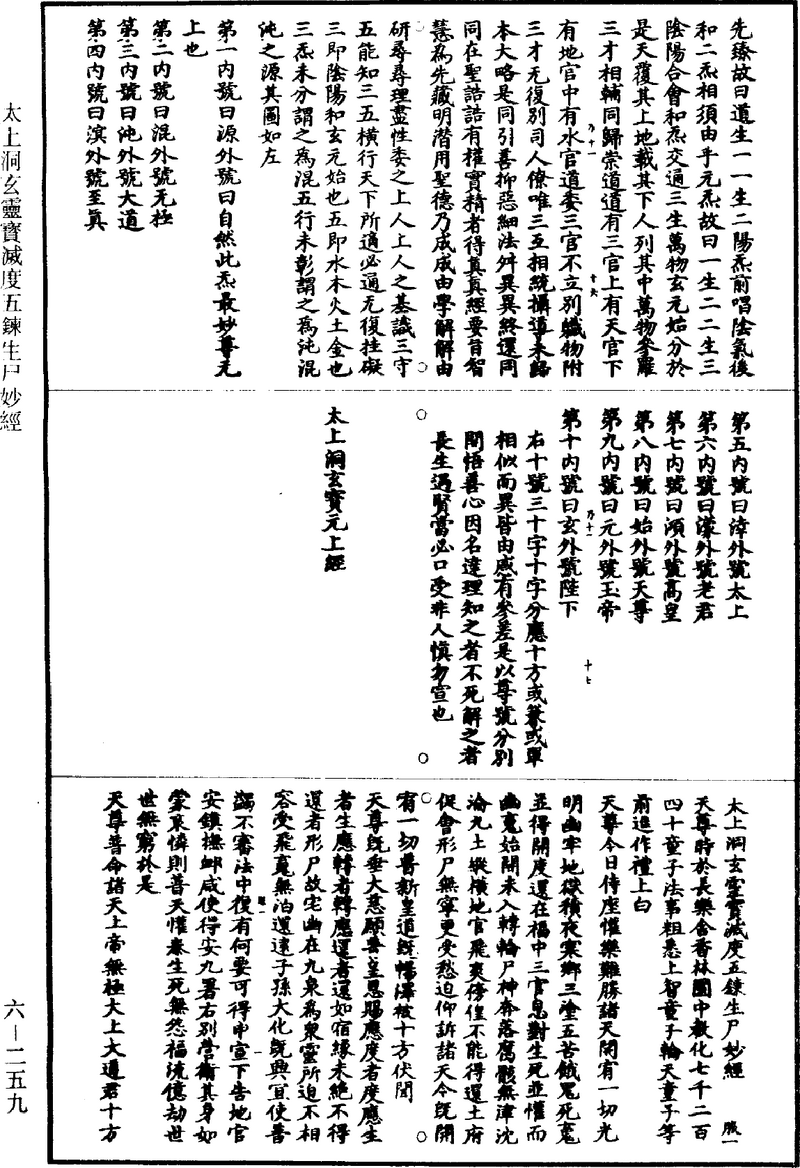 先臻故曰道生一一生二陽炁前唱陰氣後
和二炁相須由乎元炁故曰一生二二生三
陰陽合會和炁交通三生萬物玄元始分於
是天覆其上地載其下人列其中萬物參羅
三才相輔同歸崇道道有三官上有天官下
乃十一
有地官中有水官道委三官不立別職物附
十六
三才无復別司人僚唯三互相統攝導末歸
本大略是同引善抑惡細法舛異異終還同
同在聖誥誥有權實精者得真真經要旨智
慧為先藏明潛用聖德乃成成由學解解由
研尋尋理盡性委之上人上人之基識三守
五能知三五橫行天下所適必通无復挂礙
三即陰陽和玄元始也五即水木火土金也
三炁未分謂之為混五行未彰謂之為沌混
沌之源其圖如左
第一內號曰源外號曰自然此炁最妙尊无
上也
第二內號曰混外號无極
第三內號曰沌外號大道
第四內號曰濱外號至真
第五內號曰漳外號太上
第六內號曰濛外號老君
第七內號曰澒外號高皇
第八內號曰始外號天尊
第九內號曰元外號玉帝
乃十二
第十內號曰玄外號陛下
十七
右十號三十字十字分應十方或篆或單
相似而異皆由感有參差是以尊號分別
開悟善心因名達理知之者不死解之者
長生遇賢當必口受非人慎勿宣也
太上洞玄寶元上經
太上洞玄靈寶滅度五鍊生尸妙經 服一
天尊時於長樂舍香林園中教化七千二百
四十童子法事粗悉上智童子輪天童子等
前進作禮上白
天尊今日侍座懽樂難勝諸天開宥一切光
明幽牢地獄積夜寒鄉三塗五苦餓鬼死魂
並得開度還在福中三官息對生死並懽而
幽魂始開未入轉輪尸神奔落腐骸無津沈
淪九土縱橫地官飛爽傍徨不能得還土府
促會形尸無寧更受愁迫仰訴諸天今既開
宥一切普新皇道既暢澤被十方伏聞
天尊既垂大慈願垂皇恩賜應度者度應生
者生應轉者轉應還者還如宿緣未絕不得
還者形尸故宅幽在九泉為衆靈所迫不相
容受飛魂無泊還逮子孫大化既興宜使普
蠲不審法中復有何要可得申宣下告地官
安鎮撫卹咸使得安九署右別營衛其身如
蒙哀憐則普天懽泰生死無怨福流億劫世
世無窮於是
天尊普命諸天上帝無極大上大道君十方
太上洞玄靈寶滅度五鍊生尸妙經
六－二五九